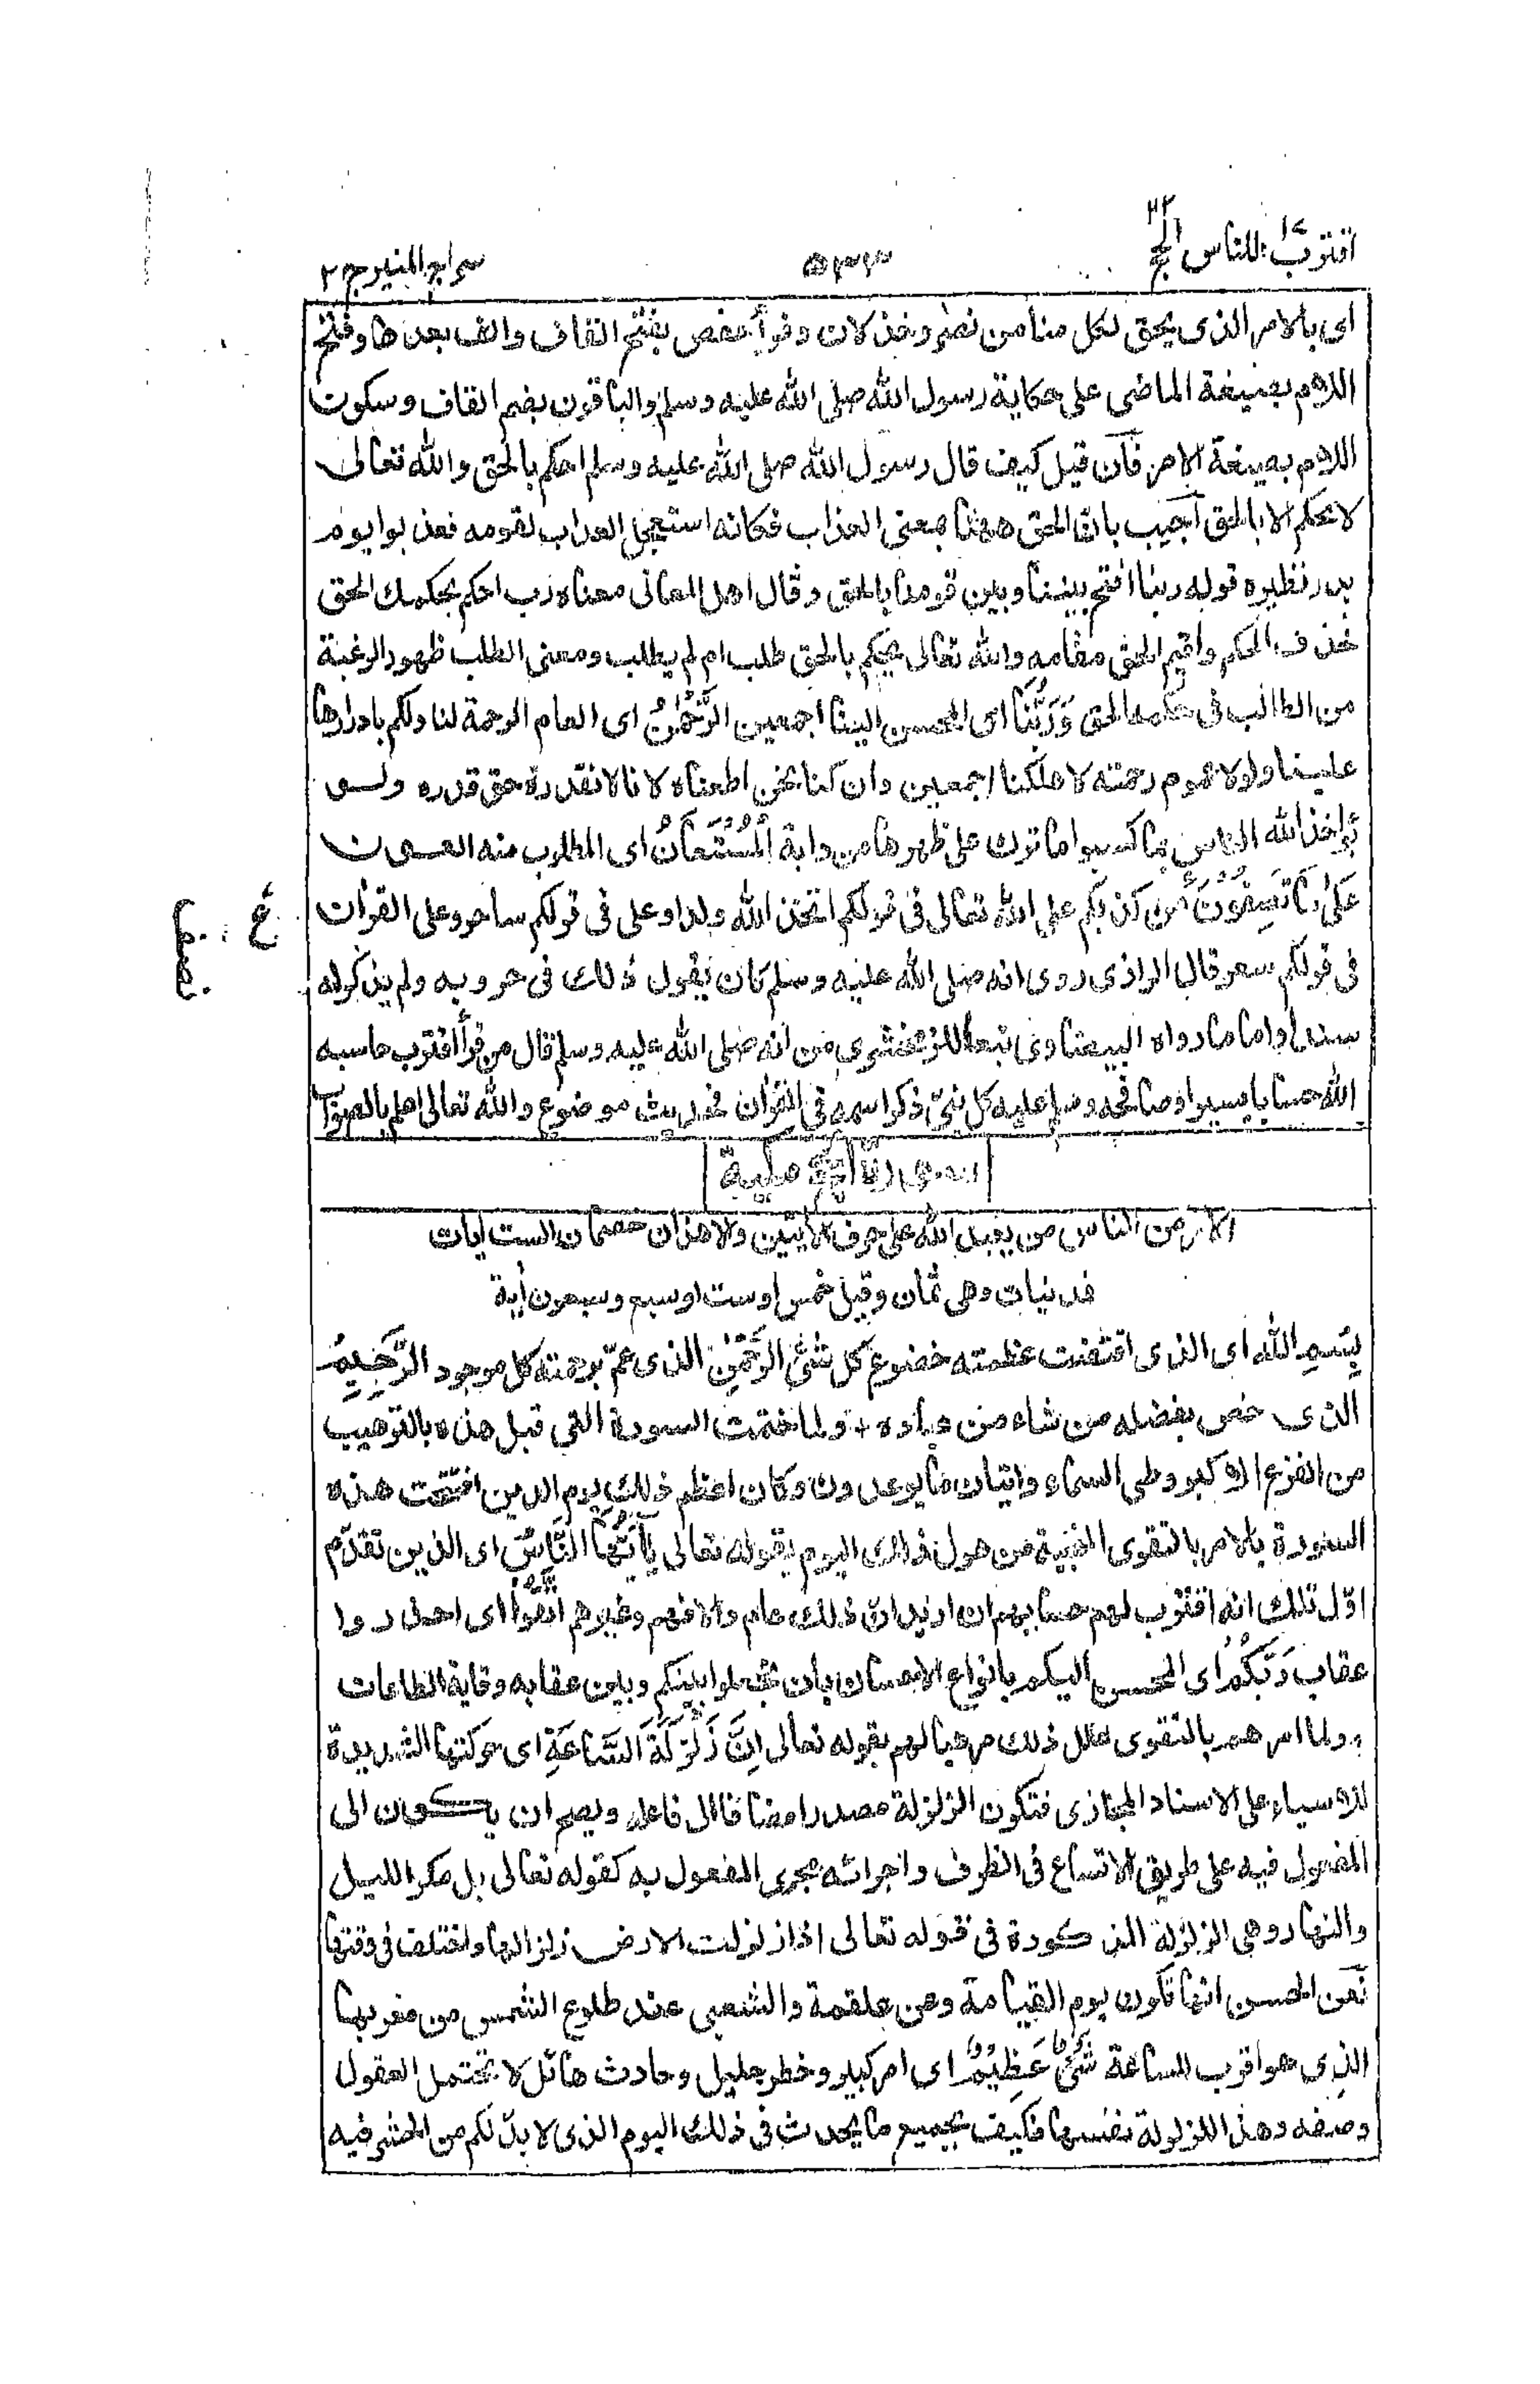 اقترب للناس ١٧ الحج ٢٢
٥٣٣
سراج المنير ج ٢
اى بالامر الذى يحق لكل منا من نصر وخذلان وقرأ حفص بفتح القاف والف بعدها وفتح
اللام بصيغة الماضى على حكاية رسول الله صلى الله عليه وسلم والباقون بضم القاف وسكون
اللام بصيغة الامر فان قيل كيف قال رسول الله صلى الله عليه وسلم احكم بالحق والله تعالى
لا يحكم الا بالحق اجيب بان الحق ههنا بمعنى العذاب فكانه استعجل العذاب لقومه فعذبوا يوم
بدر نظيره قوله ربنا افتح بيننا وبين قومنا بالحق وقال اهل المعانى معناه رب احكم بحكمك الحق
فحذف الحكم واقيم الحق مقامه والله تعالى يحكم بالحق طلب ام لم يطلب ومعنى الطلب ظهور الرغبة
من الطالب فى حكمه الحق وَرَبُّنَا اى المحسن الينا اجمعين الرَّحْمٰنُ اى العام الرحمة لنا ولكم بادرارها
علينا ولولا عموم رحمته لاهلكنا اجمعين وان كنا نحن اطعناه لانا لا نقدره حق قدره ولو
يؤاخذ الله الناس بما كسبوا ما ترك على ظهرها من دابة الْمُسْتَعَانُ اى المطلوب منه العون
عَلٰى مَا تَصِفُوْنَ من كذبكم على الله تعالى فى قولكم اتخذ الله ولدا وعلى فى قولكم ساحر وعلى القرأن
فى قولكم سحر قال الرازى روى انه صلى الله عليه وسلم كان يقول ذلك فى حروبه ولم يذكر له
سندا واما ما رواه البيضاوى تبعا للزمخشرى من انه صلى الله عليه وسلم قال من قرأ اقترب حاسبه
الله حسابا يسيرا وصافحه وسلم عليه كل نبى ذكر اسمه فى القرأن فحديث موضوع والله تعالى اعلم بالصواب
ع
سورة الحج مكية
الا ومن الناس من يعبد الله على حرف الأيتين والا هذان خصمان الست أيات
فمدنيات وهى ثمان وقيل خمس اوست اوسبع وسبعون أية
بِسْمِ الله اى الذى اقتضت عظمته خضوع كل شئ الرَّحْمٰنِ الذى عمّ برحمته كل موجود الرَّحِيْمِ
الذى خص بفضله من شاء من عباده + ولما ختمت السورة التى قبل هذه بالترهيب
من الفزع الاكبر وطى السماء واتيان ما يوعدون وكان اعظم ذلك يوم الدين افتتحت هذه
السورة بالامر بالتقوى المنجية من هول ذلك اليوم بقوله تعالى يَآاَيُّهَا النَّاسُ اى الذين تقدّم
اوّل تلك انه اقترب لهم حسابهم ان اريد ان ذلك عام والا فهم وغيرهم اتَّقُوْا اى احذروا
عقاب رَبَّكُمْ اى المحسن اليكم بانواع الاحسان بأن تجعلوا بينكم وبين عقابه وقاية الطاعات
ولما امرهم بالتقوى علل ذلك مرهبا لهم بقوله تعالى اِنَّ زَلْزَلَةَ السَّاعَةِ اى حركتها الشديدة
للاشياء على الاسناد المجازى فتكون الزلزلة مصدرا مضافا الى فاعله ويصح ان يكون الى
المفعول فيه على طريق الاتساع فى الظرف واجرائه مجرى المفعول به كقوله تعالى بل مكر الليل
والنهار وهى الزلزلة المذكورة فى قوله تعالى اذا زلزلت الارض زلزالها واختلف فى وقتها
فعن الحسن انها تكون يوم القيامة وعن علقمة والشعبى عند طلوع الشمس من مغربها
الذى هو اقرب للساعة شَىْءٌ عَظِيْمٌ اى امر كبير وخطر جليل وحادث هائل لا تحتمل العقول
وصفه وهذا للزلزلة نفسها فكيف بجميع ما يحدث فى ذلك اليوم الذى لا بدّ لكم من الحشر فيه